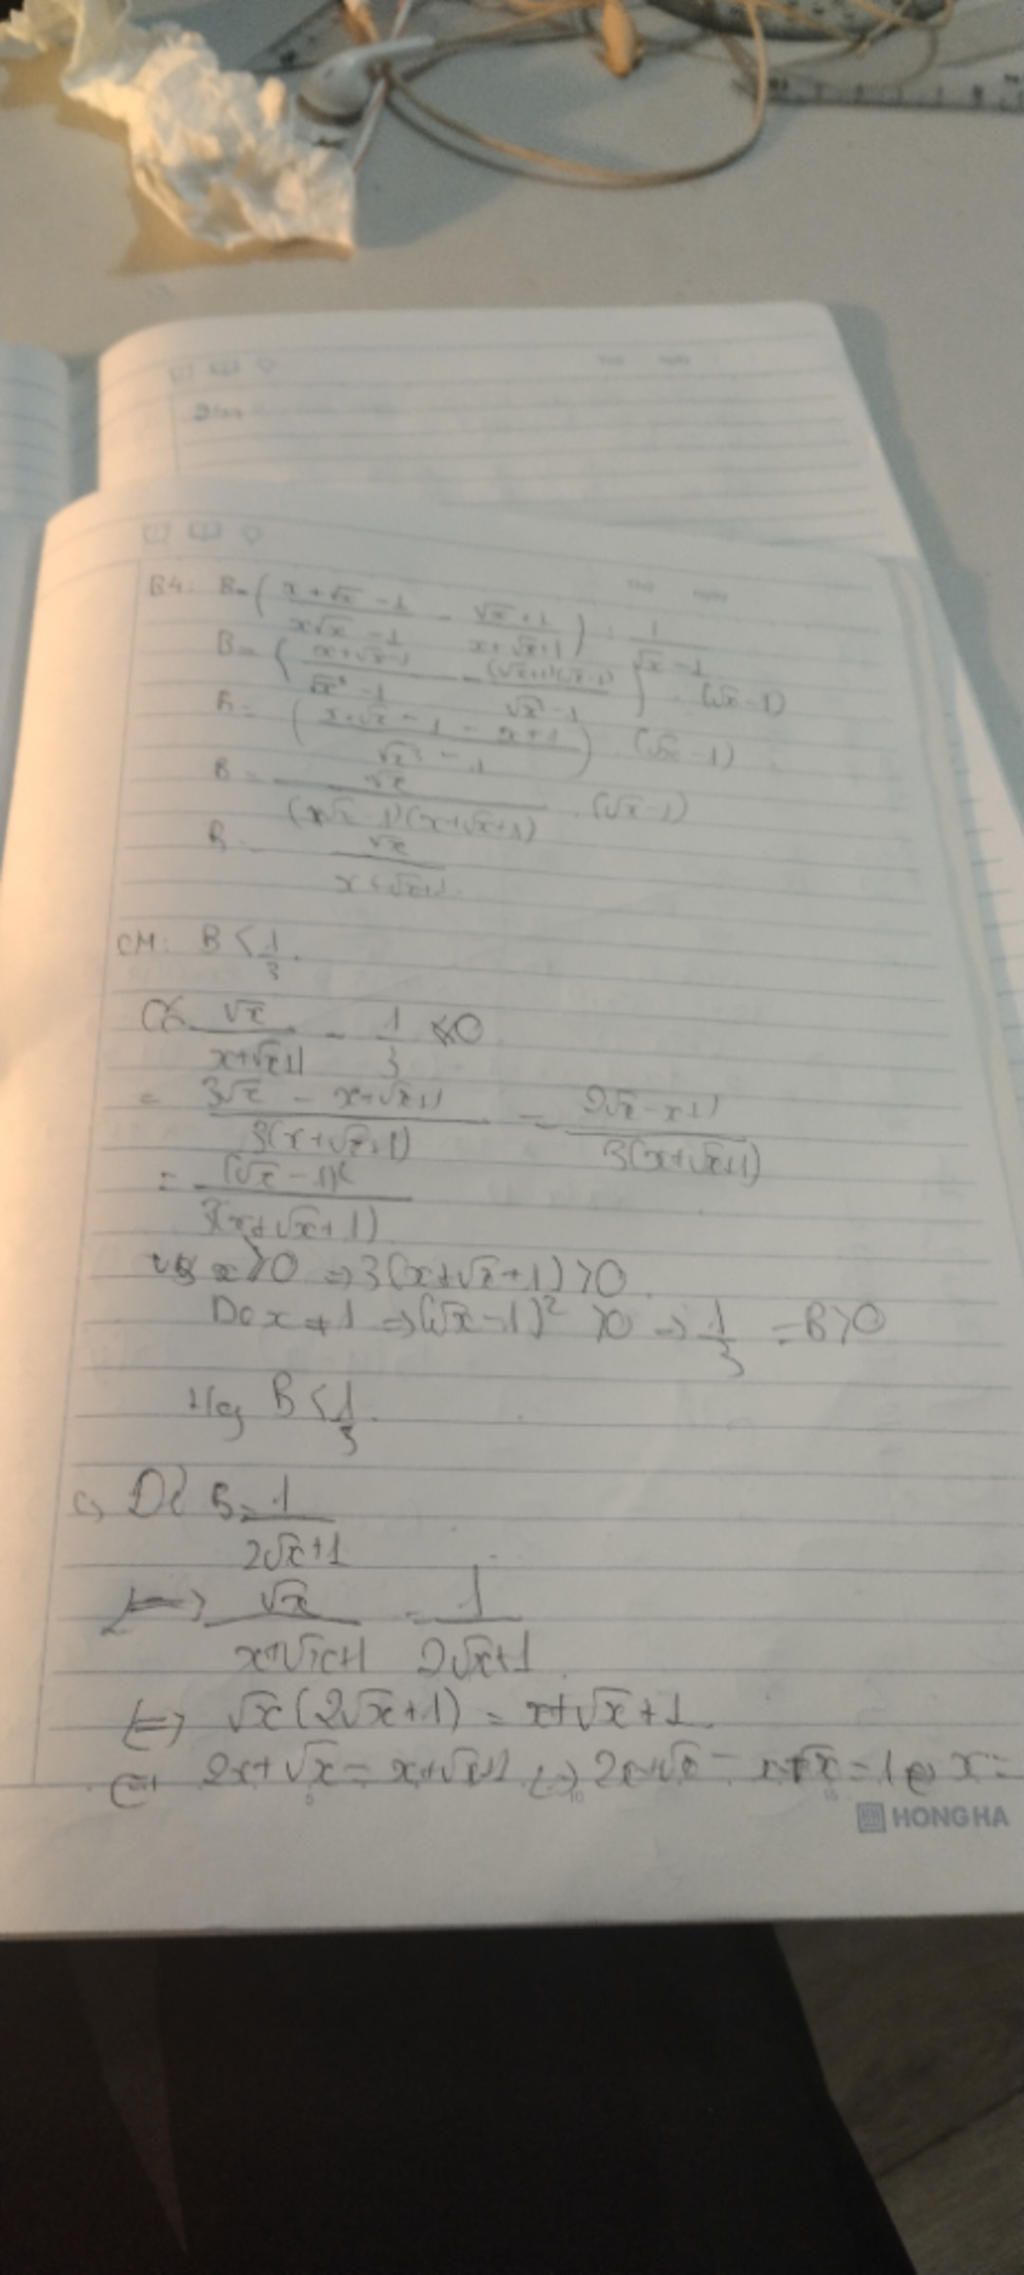 B4: B = ( (x + √x - 1)/(x√x - 1) - (√x + 1)/(x + √x + 1) ) : 1/(√x - 1)
B = ( (x + √x - 1)/(√x³ - 1) - ((√x+1)(√x-1))/(√x³ - 1) ) . (√x - 1)
B = ( (x + √x - 1 - x + 1)/(√x³ - 1) ) . (√x - 1)
B = √x/((√x - 1)(x + √x + 1)) . (√x - 1)
B = √x/(x + √x + 1)
CM: B < 1/3.
√x/(x+√x+1) - 1/3 < 0
= (3√x - x+√x+1)/(3(x+√x+1)) = (2√x - x+1)/(3(x+√x+1))
= (√x - 1)²/(3(x+√x+1))
x > 0 => 3(x+√x+1) > 0
Do x ≠ 1 => (√x - 1)² > 0 => 1/3 - B > 0
B < 1/3.
c, B = 1/(2√x+1)
<=> √x/(x+√x+1) = 1/(2√x+1)
<=> √x(2√x+1) = x+√x+1
<=> 2x+√x = x+√x+1 <=> 2x+√x - x+√x = 1 <=> x =
HONG HA